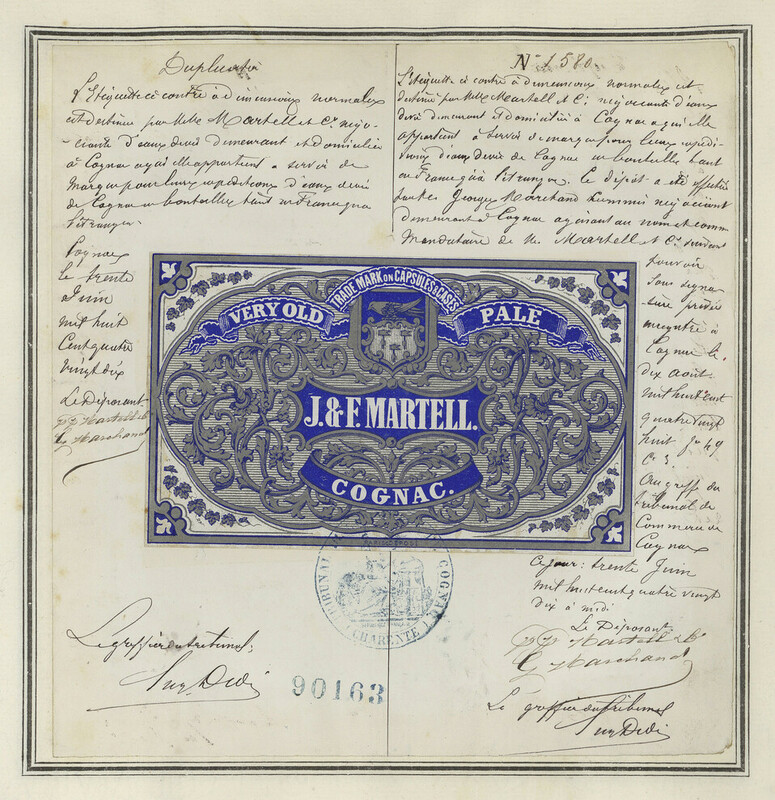 Duplicata
L'Etiquette ci contre à dimensions normales
est destinée par MM. Martell et Cie négo-
ciants d'eaux de vie demeurant et domiciliés
à Cognac à qui elle appartient à servir de
Marque pour leurs expéditions d'eaux de vie
de Cognac en bouteilles tant en France qu'à
l'étranger.
Cognac
le trente
Juin
mil huit
Cent quatre
vingt dix
Le Déposant
pp Martell & Co
G Marchand
Le greffier du tribunal
No 1580.
L'étiquette ci contre à dimensions normales est
destinée par MM. Martell et Cie négociants d'eaux
de vie demeurant et domiciliés à Cognac à qui elle
appartient à servir de marque pour leurs expédi-
tions d'eaux de vie de Cognac en bouteilles tant
en France qu'à l'étranger. Ce dépôt a été effectué
par Mr Georges Marchand négociant
demeurant à Cognac agissant au nom et comme
Mandataire de MM. Martell et Cie suivant
pouvoir
sous signa
ture privée
enregistré à
Cognac le
dix Août
mil huit cent
quatre vingt
huit fo 49
Co 3
Au greffe du
tribunal de
Commerce de
Cognac
Ce jour: trente Juin
mil huit cent quatre vingt
dix à midi
Le Déposant
pp Martell & Co
G Marchand
Le greffier du Tribunal
TRADE MARK ON CAPSULES & CASES
VERY OLD PALE
J. & F. MARTELL.
COGNAC.
TRIBUNAL DE COGNAC
CHARENTE
90163